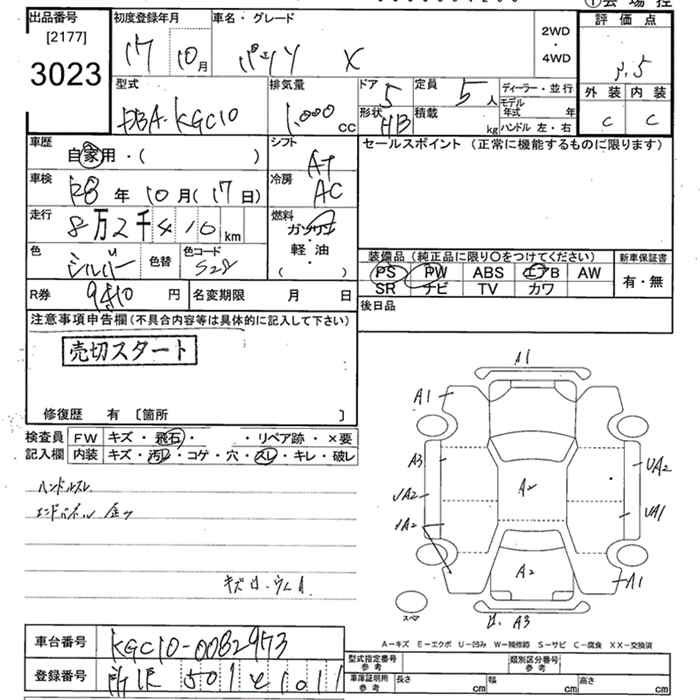 ①会場控
出品番号 初度登録年月 車名・グレード 評価点
[2177] 17 10月 パッソ X 2WD・4WD
3023 3.5
型式 排気量 ドア 5 定員 5人 ディーラー・並行 外装 内装
DBA-KGC10 1,000 cc 形状 HB 積載 kg モデル年式 年 C C
ハンドル 左・右
車歴 自家用・( ) シフト AT セールスポイント(正常に機能するものに限ります)
車検 R8年 10月(17日) 冷房 AC
走行 8万2千410km 燃料 ガソリン・軽油 ( )
色 シルバー 色替 色コード S28
装備品(純正品に限り〇をつけてください) 新車保証書
PS PW ABS エアB AW 有・無
SR ナビ TV カワ
R券 円 名変期限 月 日 後日品
注意事項申告欄(不具合内容等は具体的に記入して下さい)
売切スタート
修復歴 有 〔箇所 〕
検査員 FW キズ・飛石・ ・リペア跡・×要
記入欄 内装 キズ・汚レ・コゲ・穴・スレ・キレ・破レ
ハンドルスレ
A1
A1
A3
UA2
A2
UA2
UA1
A2
A1
A3
スペア
A-キズ E-エクボ U-凹み W-補修跡 S-サビ C-腐食 XX-交換済
車台番号 KGC10-0082973
登録番号
型式指定番号 参考 類別区分番号 参考
車庫証明所 参考 長さ cm 幅 cm 高さ cm